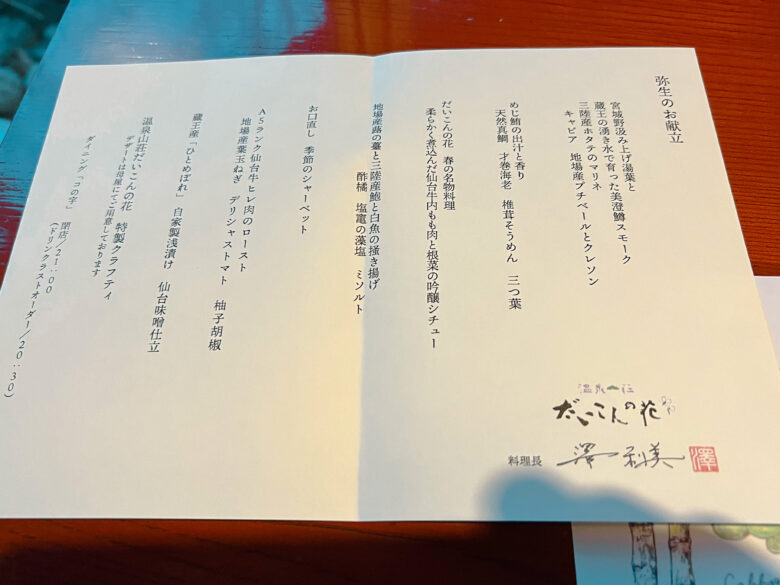 弥生のお献立
宮城野汲み上げ湯葉と
蔵王の湧き水で育った美澄鱒スモーク
三陸産ホタテのマリネ
キャビア　地場産プチベールとクレソン
めじ鮪の出汁と香り
天然真鯛　才巻海老　椎茸そうめん　三つ葉
だいこんの花　春の名物料理
柔らかく煮込んだ仙台牛内もも肉と根菜の吟醸シチュー
地場産蕗の薹と三陸産鮑と白魚の掻き揚げ
酢橘　塩竈の藻塩　ミソルト
お口直し　季節のシャーベット
A5ランク仙台牛ヒレ肉のロースト
地場産葉玉ねぎ　デリシャストマト　柚子胡椒
蔵王産「ひとめぼれ」　自家製浅漬け　仙台味噌仕立
温泉山荘だいこんの花　特製クラフティ
デザートは母屋にてご用意しております
ダイニング「コの字」　閉店／21:00
(ドリンクラストオーダー／20:30)
温泉山荘
だいこんの花
料理長　澤　利美
澤